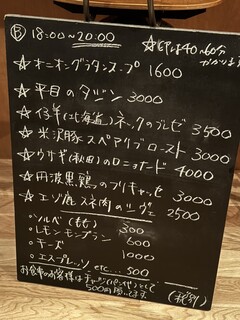 Ⓑ 18:00~20:00
☆印は40~60分
かかります
☆オニオングラタンスープ 1600
☆平目のタジン 3000
☆仔羊(北海道)ネックのブレゼ 3500
☆米沢豚スペアリブロースト 3000
☆ウサギ(秋田)のロニョナード 4000
☆丹波黒鶏のフリキャッセ 3000
☆エゾ鹿スネ肉のシヴェ 2500
○ソルベ(もも) 300
○レモンモンブラン 600
○チーズ 1000
○エスプレッソ etc... 500
お食事のお客様はチャージ(パン代)として
500円頂いてます (税別)